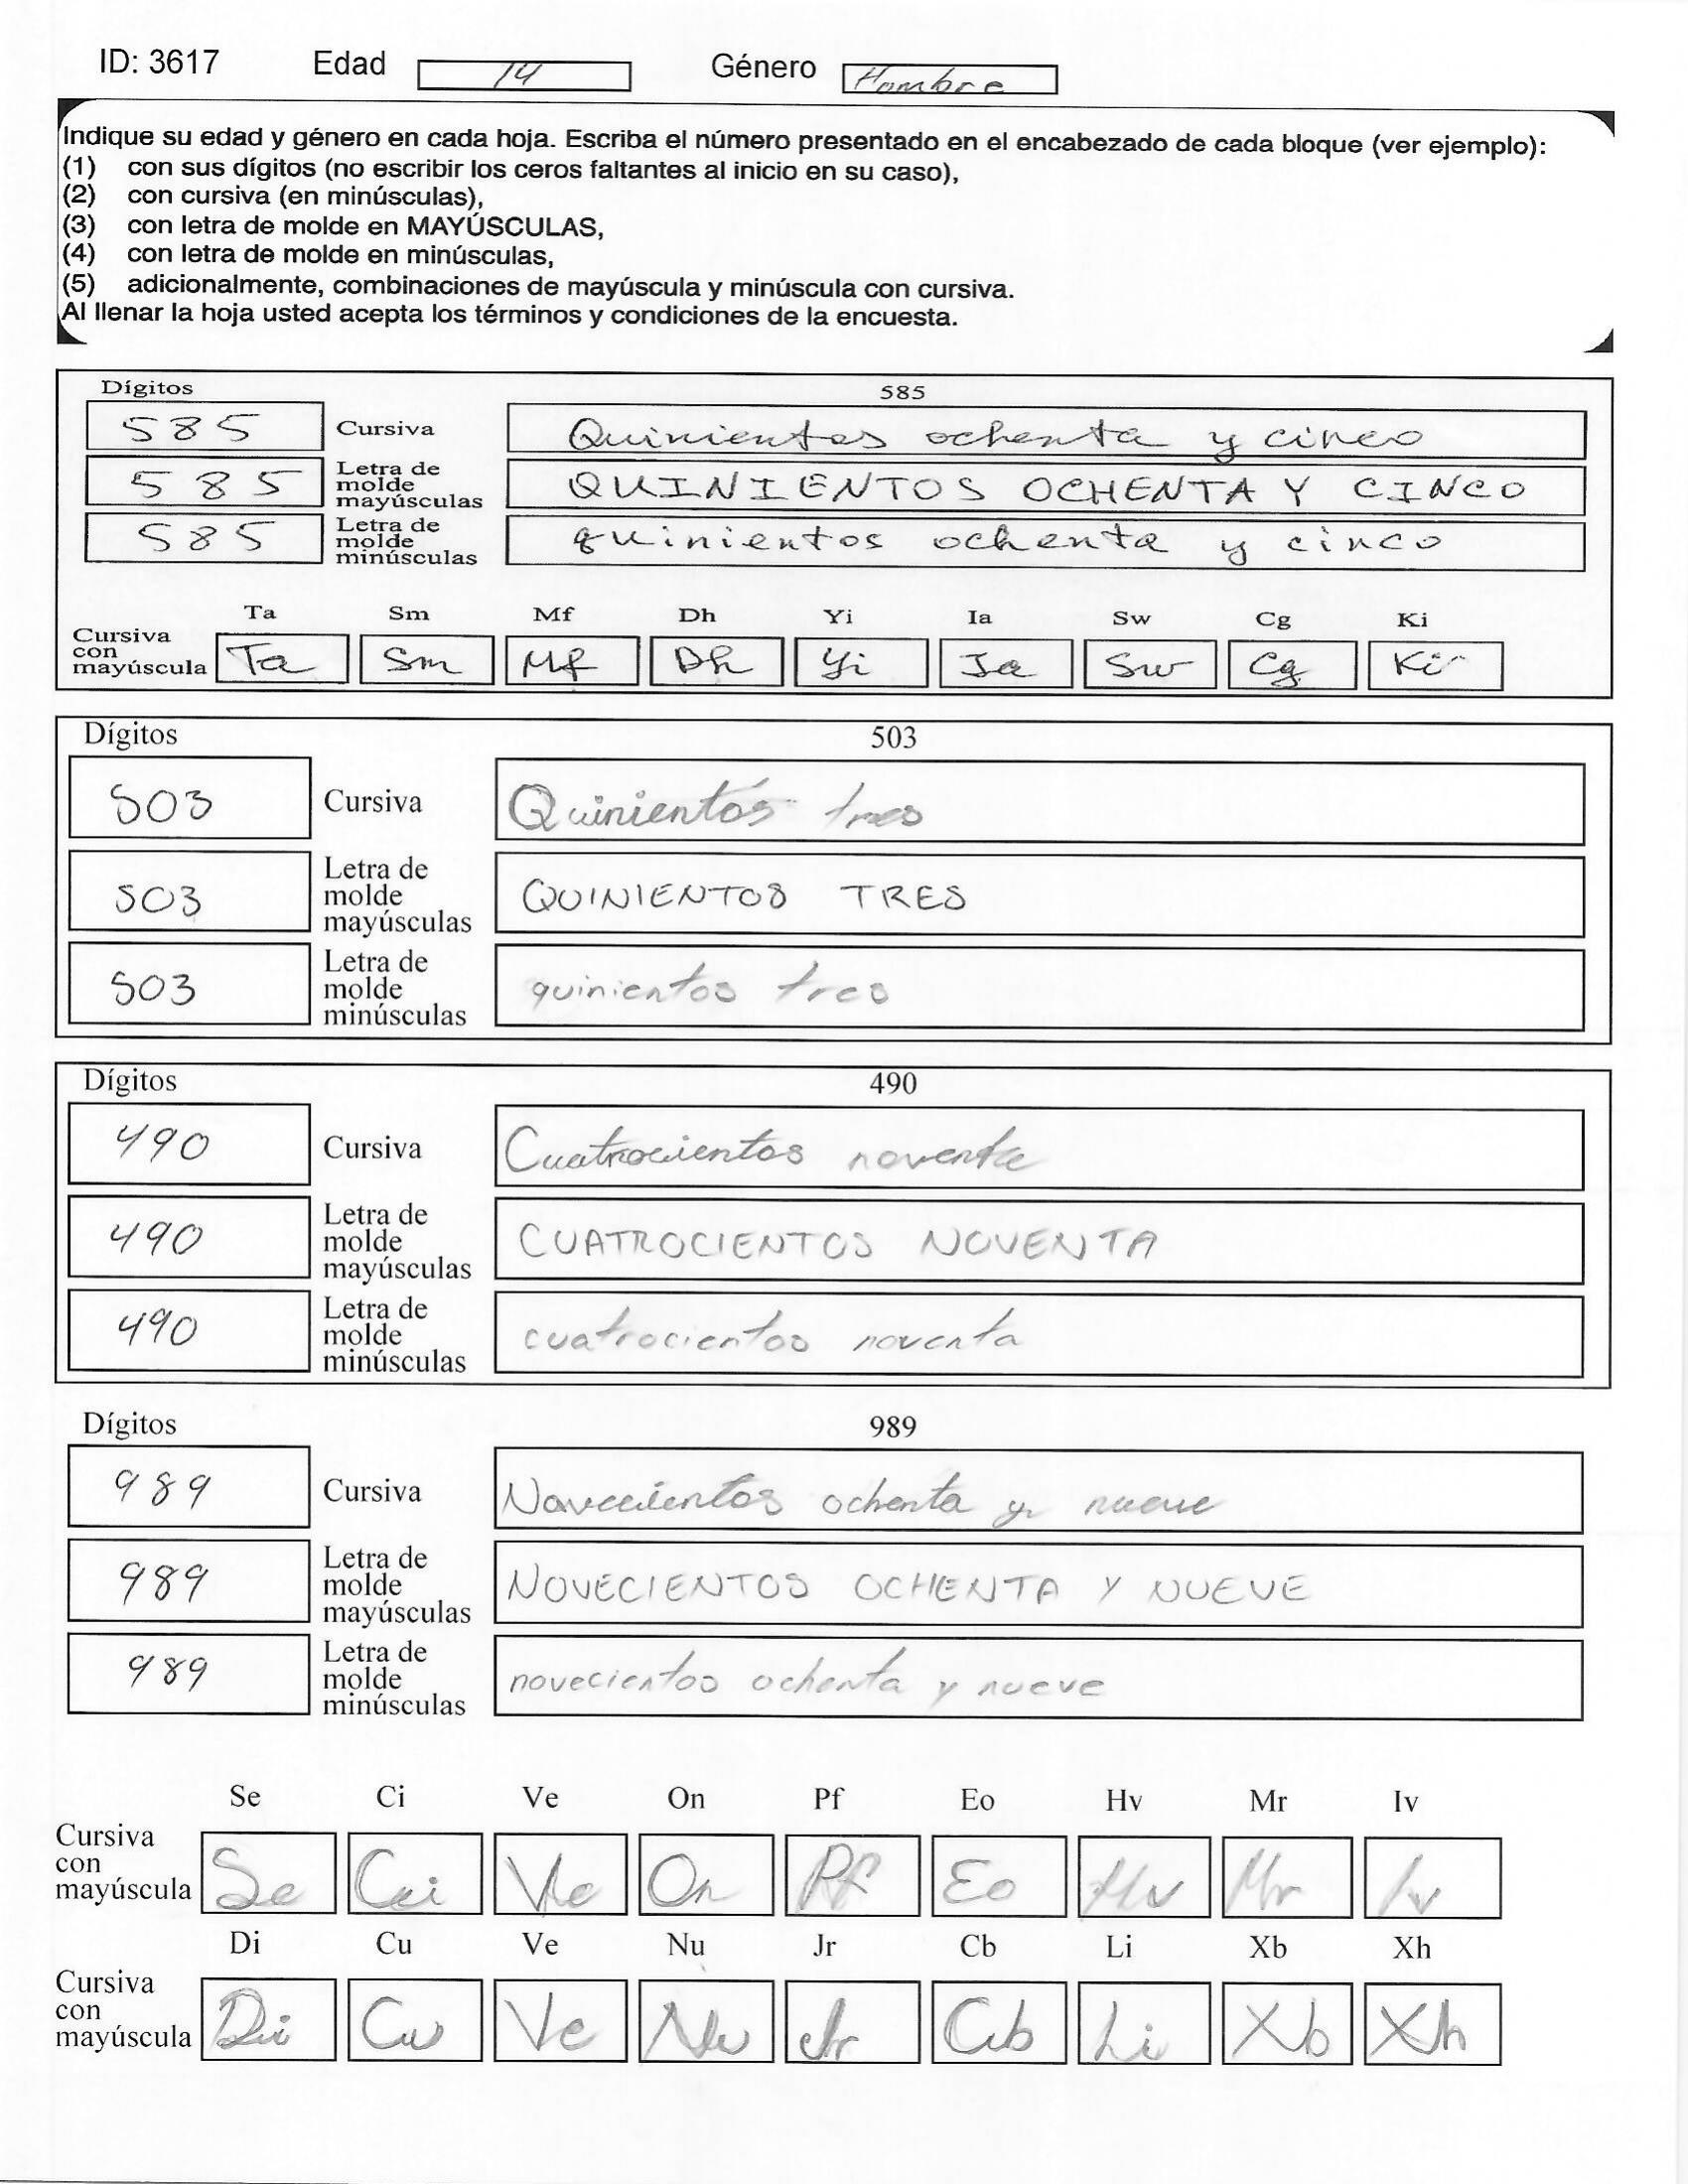 ID: 3617 Edad 14 Género Hombre
Indique su edad y género en cada hoja. Escriba el número presentado en el encabezado de cada bloque (ver ejemplo):
(1) con sus dígitos (no escribir los ceros faltantes al inicio en su caso),
(2) con cursiva (en minúsculas),
(3) con letra de molde en MAYÚSCULAS,
(4) con letra de molde en minúsculas,
(5) adicionalmente, combinaciones de mayúscula y minúscula con cursiva.
Al llenar la hoja usted acepta los términos y condiciones de la encuesta.
Dígitos 585
585 Cursiva Quinientos ochenta y cinco
585 Letra de molde mayúsculas QUINIENTOS OCHENTA Y CINCO
585 Letra de molde minúsculas quinientos ochenta y cinco
Ta Sm Mf Dh Yi Ia Sw Cg Ki
Cursiva con mayúscula Ta Sm Mf Dh Yi Ia Sw Cg Ki
Dígitos 503
503 Cursiva Quinientos tres
503 Letra de molde mayúsculas QUINIENTOS TRES
503 Letra de molde minúsculas quinientos tres
Dígitos 490
490 Cursiva Cuatrocientos noventa
490 Letra de molde mayúsculas CUATROCIENTOS NOVENTA
490 Letra de molde minúsculas cuatrocientos noventa
Dígitos 989
989 Cursiva Novecientos ochenta y nueve
989 Letra de molde mayúsculas NOVECIENTOS OCHENTA Y NUEVE
989 Letra de molde minúsculas novecientos ochenta y nueve
Se Ci Ve On Pf Eo Hv Mr Iv
Cursiva con mayúscula Se Ci Ve On Pf Eo Hv Mr Iv
Di Cu Ve Nu Jr Cb Li Xb Xh
Cursiva con mayúscula Di Cu Ve Nu Jr Cb Li Xb Xh